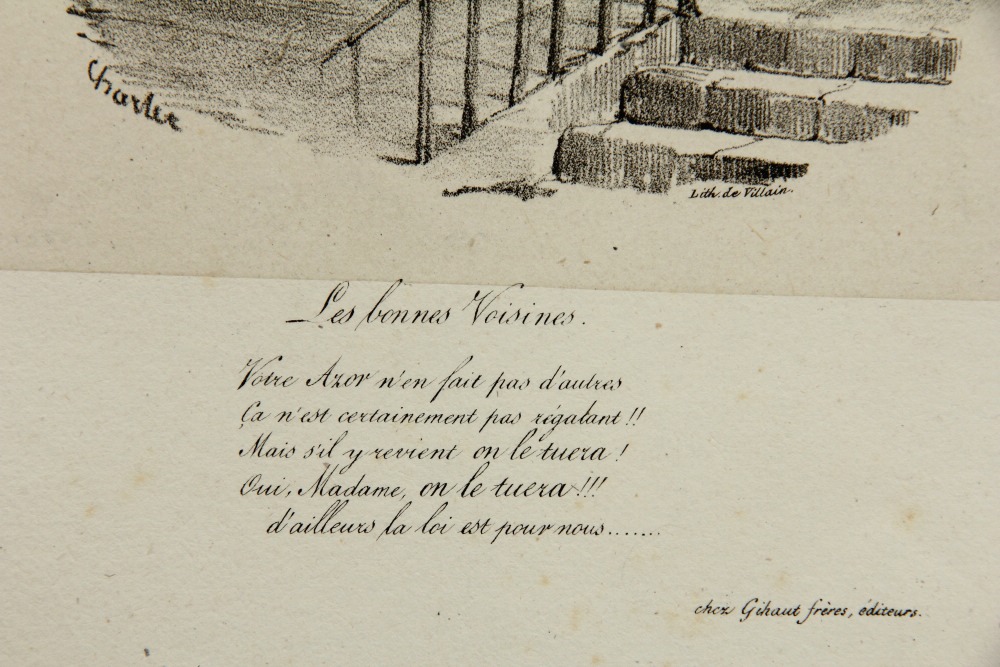 Charlet
Lith. de Villain.
Les bonnes Voisines.
Votre Azor n'en fait pas d'autres
Ça n'est certainement pas régalant !!
Mais s'il y revient on le tuera !
Oui, Madame, on le tuera !!!
d'ailleurs la loi est pour nous.......
chez Gihaut frères, éditeurs.